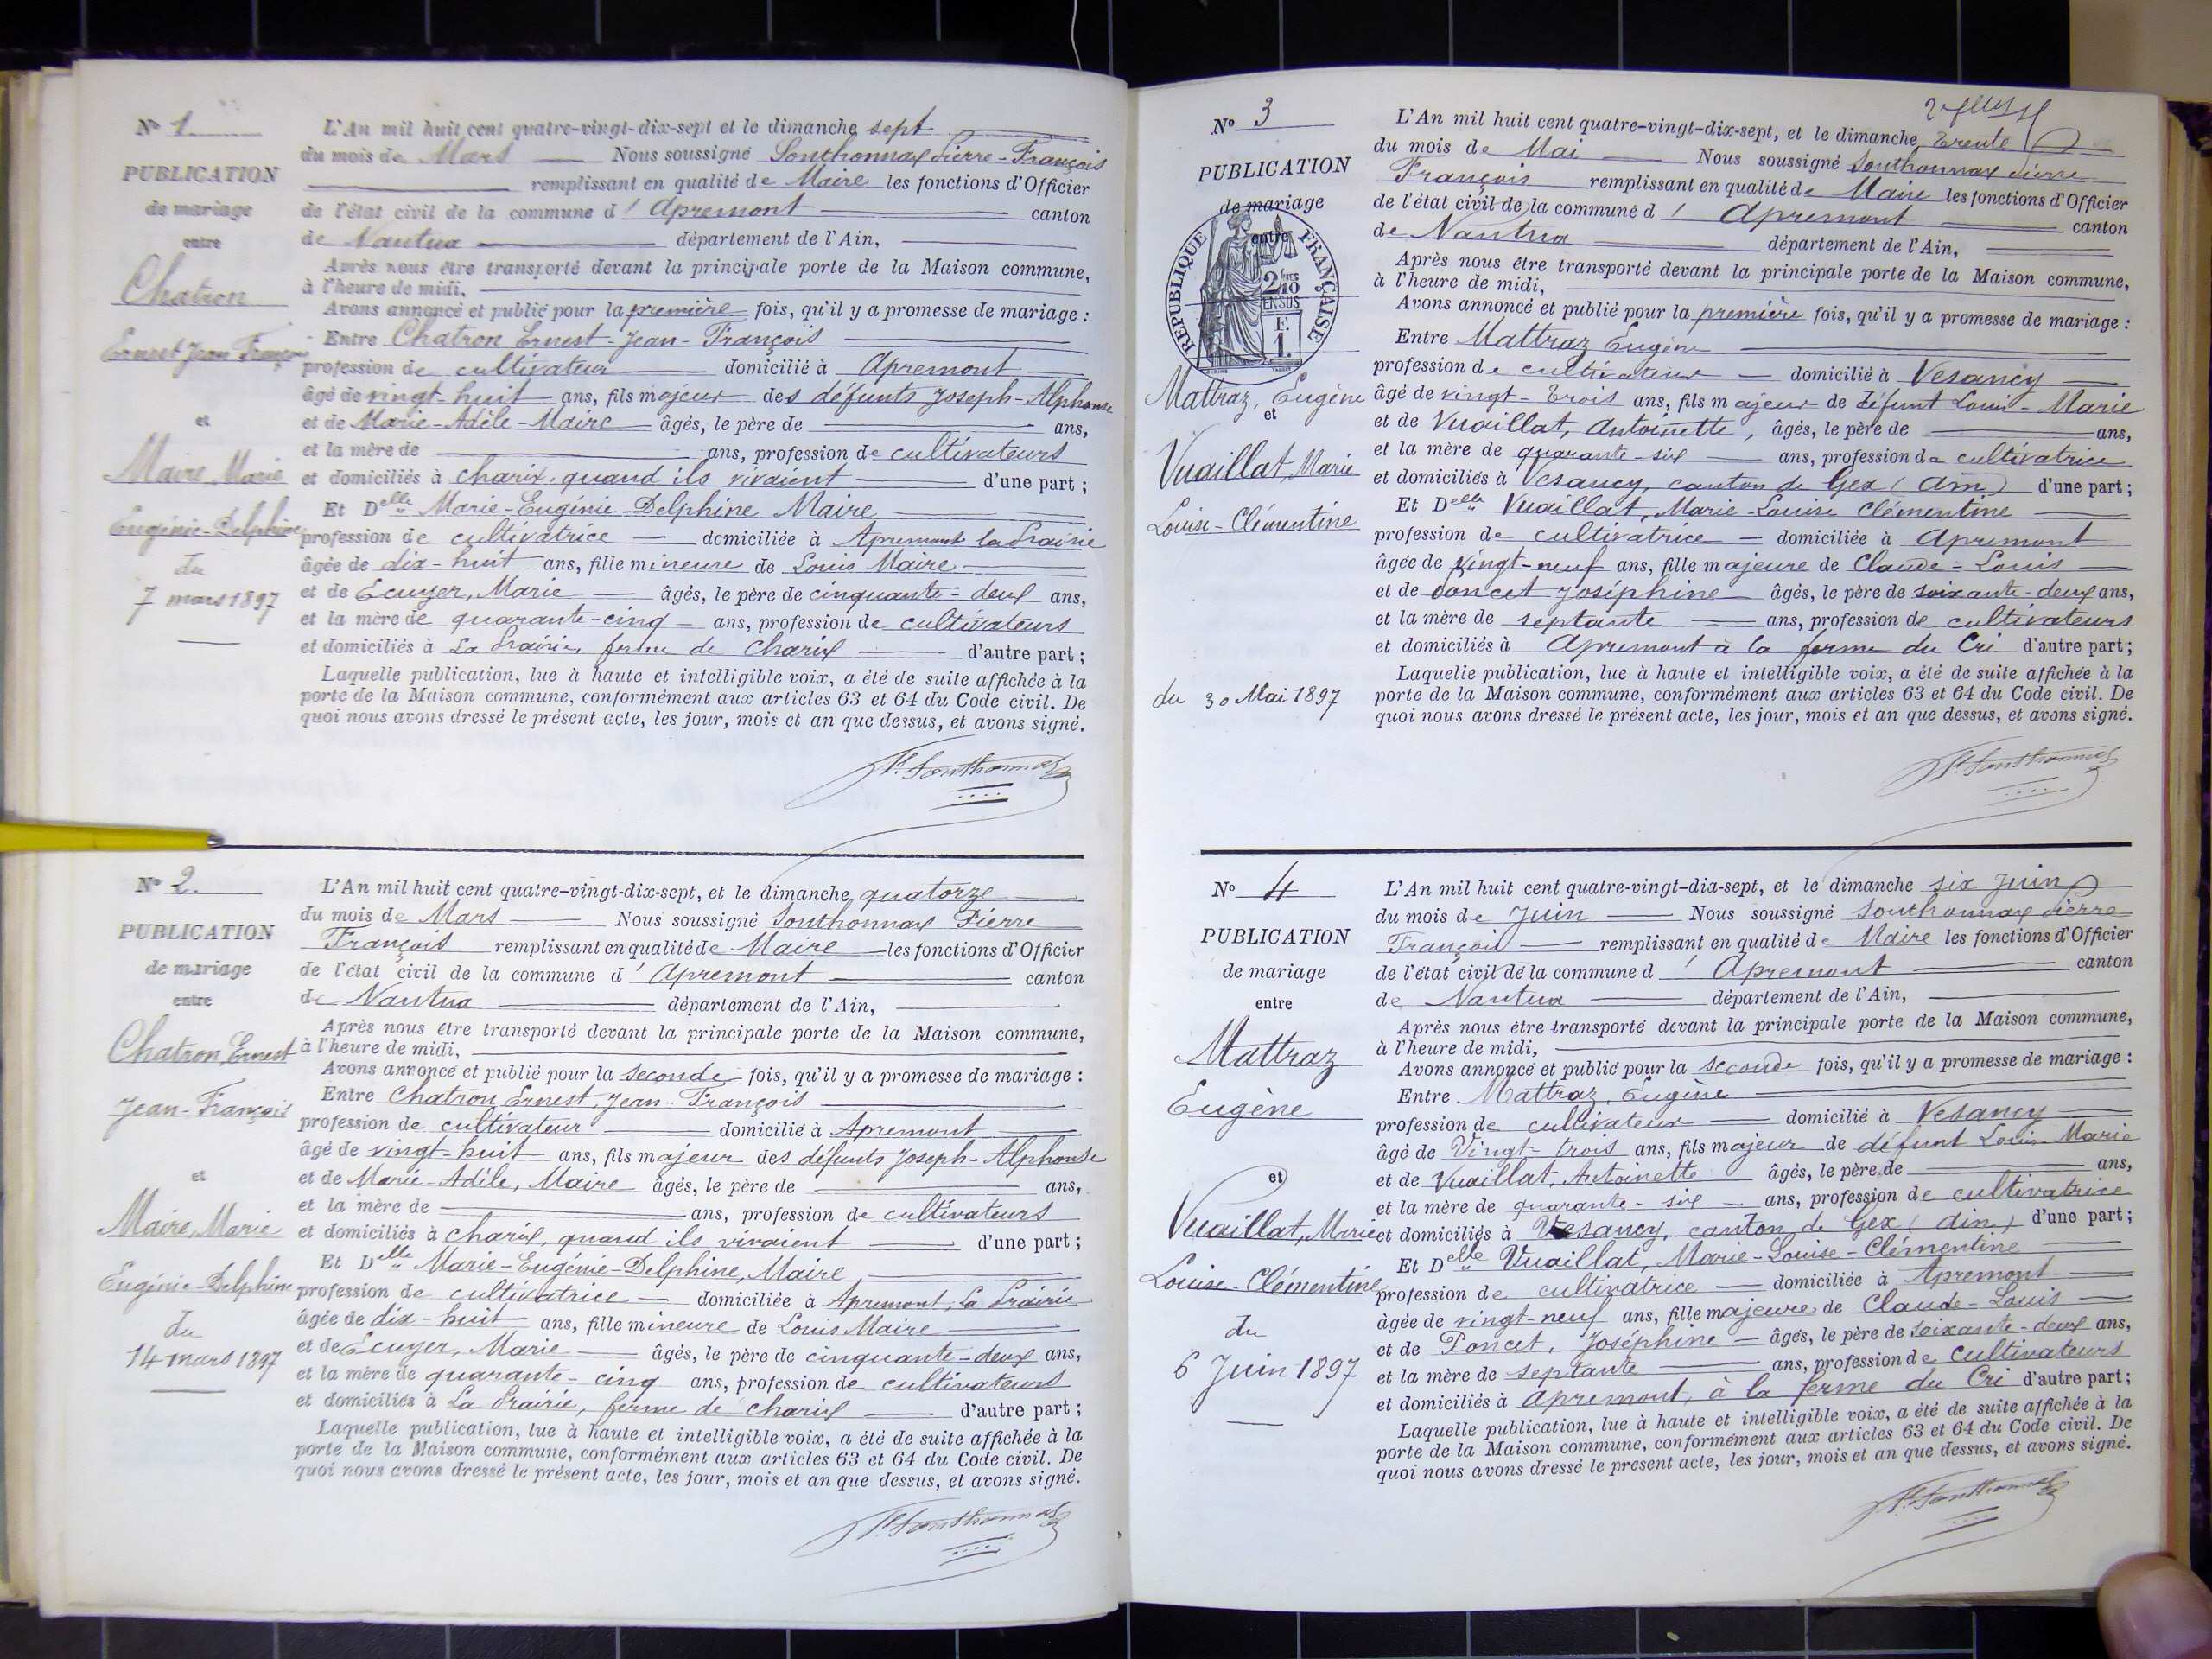 N° 1
PUBLICATION
de mariage
entre
Chatron
Ernest Jean François
et
Maire Marie
Eugénie-Delphine
du
7 mars 1897
L'An mil huit cent quatre-vingt-dix-sept et le dimanche sept
du mois de Mars Nous soussigné Sonthonnax Pierre-François
remplissant en qualité de Maire les fonctions d'Officier
de l'état civil de la commune d' Apremont canton
de Nantua département de l'Ain,
Après nous être transporté devant la principale porte de la Maison commune,
à l'heure de midi,
Avons annoncé et publié pour la première fois, qu'il y a promesse de mariage :
Entre Chatron Ernest-Jean-François
profession de cultivateur domicilié à Apremont
âgé de vingt-huit ans, fils majeur des défunts Joseph-Alphonse
et de Marie-Adèle-Maire âgés, le père de ans,
et la mère de ans, profession de cultivateurs
et domiciliés à Charix, quand ils vivaient d'une part ;
Et Delle Marie-Eugénie-Delphine Maire
profession de cultivatrice domiciliée à Apremont la Prairie
âgée de dix-huit ans, fille mineure de Louis Maire
et de Ecuyer, Marie âgés, le père de cinquante-deux ans,
et la mère de quarante-cinq ans, profession de cultivateurs
et domiciliés à La Prairie, ferme de Charix d'autre part ;
Laquelle publication, lue à haute et intelligible voix, a été de suite affichée à la
porte de la Maison commune, conformément aux articles 63 et 64 du Code civil. De
quoi nous avons dressé le présent acte, les jour, mois et an que dessus, et avons signé.
P. Sonthonnax
N° 2.
PUBLICATION
de mariage
entre
Chatron, Ernest
Jean-François
et
Maire, Marie
Eugénie-Delphine
du
14 mars 1897
L'An mil huit cent quatre-vingt-dix-sept, et le dimanche quatorze
du mois de Mars Nous soussigné Sonthonnax Pierre
François remplissant en qualité de Maire les fonctions d'Officier
de l'état civil de la commune d' Apremont canton
de Nantua département de l'Ain,
Après nous être transporté devant la principale porte de la Maison commune,
à l'heure de midi,
Avons annoncé et publié pour la seconde fois, qu'il y a promesse de mariage :
Entre Chatron, Ernest, Jean-François
profession de cultivateur domicilié à Apremont
âgé de vingt-huit ans, fils majeur des défunts Joseph-Alphonse
et de Marie-Adèle, Maire âgés, le père de ans,
et la mère de ans, profession de cultivateurs
et domiciliés à Charix, quand ils vivaient d'une part ;
Et Delle Marie-Eugénie-Delphine, Maire
profession de cultivatrice domiciliée à Apremont, La Prairie
âgée de dix-huit ans, fille mineure de Louis Maire
et de Ecuyer, Marie âgés, le père de cinquante-deux ans,
et la mère de quarante-cinq ans, profession de cultivateurs
et domiciliés à La Prairie, ferme de Charix d'autre part ;
Laquelle publication, lue à haute et intelligible voix, a été de suite affichée à la
porte de la Maison commune, conformément aux articles 63 et 64 du Code civil. De
quoi nous avons dressé le présent acte, les jour, mois et an que dessus, et avons signé.
P. Sonthonnax
N° 3
PUBLICATION
de mariage
entre
RÉPUBLIQUE FRANÇAISE
2/10
EN SUS
F.
1.
Mattraz, Eugène
et
Vuaillat, Marie
Louise-Clémentine
du 30 Mai 1897
L'An mil huit cent quatre-vingt-dix-sept, et le dimanche, trente
du mois de Mai Nous soussigné Sonthonnax Pierre
François remplissant en qualité de Maire les fonctions d'Officier
de l'état civil de la commune d' Apremont canton
de Nantua département de l'Ain,
Après nous être transporté devant la principale porte de la Maison commune,
à l'heure de midi,
Avons annoncé et publié pour la première fois, qu'il y a promesse de mariage :
Entre Mattraz Eugène
profession de cultivateur domicilié à Vesancy
âgé de vingt-trois ans, fils majeur de défunt Louis-Marie
et de Vuaillat, Antoinette, âgés, le père de ans,
et la mère de quarante-six ans, profession de cultivatrice
et domiciliés à Vesancy, canton de Gex (Ain) d'une part ;
Et Delle Vuaillat, Marie-Louise Clémentine
profession de cultivatrice domiciliée à Apremont
âgée de vingt-neuf ans, fille majeure de Claude-Louis
et de Poncet Joséphine âgés, le père de soixante-deux ans,
et la mère de septante ans, profession de cultivateurs
et domiciliés à Apremont à la ferme du Cri d'autre part ;
Laquelle publication, lue à haute et intelligible voix, a été de suite affichée à la
porte de la Maison commune, conformément aux articles 63 et 64 du Code civil. De
quoi nous avons dressé le présent acte, les jour, mois et an que dessus, et avons signé.
P. Sonthonnax
N° 4
PUBLICATION
de mariage
entre
Mattraz
Eugène
et
Vuaillat, Marie
Louise-Clémentine
du
6 Juin 1897
L'An mil huit cent quatre-vingt-dix-sept, et le dimanche six Juin
du mois de Juin Nous soussigné Sonthonnax Pierre
François remplissant en qualité de Maire les fonctions d'Officier
de l'état civil de la commune d' Apremont canton
de Nantua département de l'Ain,
Après nous être transporté devant la principale porte de la Maison commune,
à l'heure de midi,
Avons annoncé et publié pour la seconde fois, qu'il y a promesse de mariage :
Entre Mattraz, Eugène
profession de cultivateur domicilié à Vesancy
âgé de Vingt-trois ans, fils majeur de défunt Louis Marie
et de Vuaillat, Antoinette âgés, le père de ans,
et la mère de quarante-six ans, profession de cultivatrice
et domiciliés à Vesancy, canton de Gex (Ain) d'une part ;
Et Delle Vuaillat, Marie-Louise-Clémentine
profession de cultivatrice domiciliée à Apremont
âgée de vingt-neuf ans, fille majeure de Claude-Louis
et de Poncet, Joséphine âgés, le père de soixante-deux ans,
et la mère de septante ans, profession de cultivateurs
et domiciliés à Apremont, à la ferme du Cri d'autre part ;
Laquelle publication, lue à haute et intelligible voix, a été de suite affichée à la
porte de la Maison commune, conformément aux articles 63 et 64 du Code civil. De
quoi nous avons dressé le présent acte, les jour, mois et an que dessus, et avons signé.
P. Sonthonnax